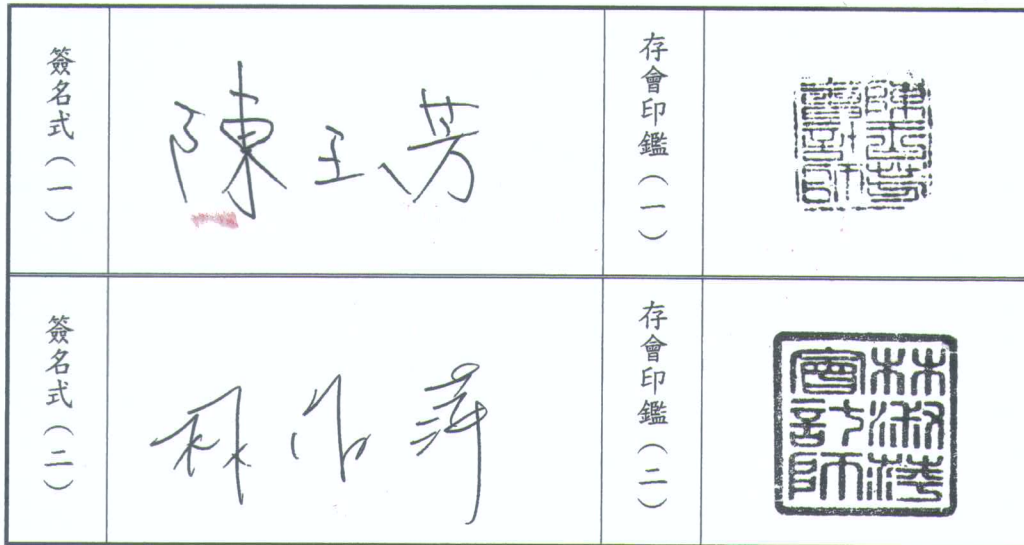 簽名式(一)
陳玉芳
存會印鑑(一)
陳玉芳
會計師
簽名式(二)
林淑萍
存會印鑑(二)
林淑
會計師